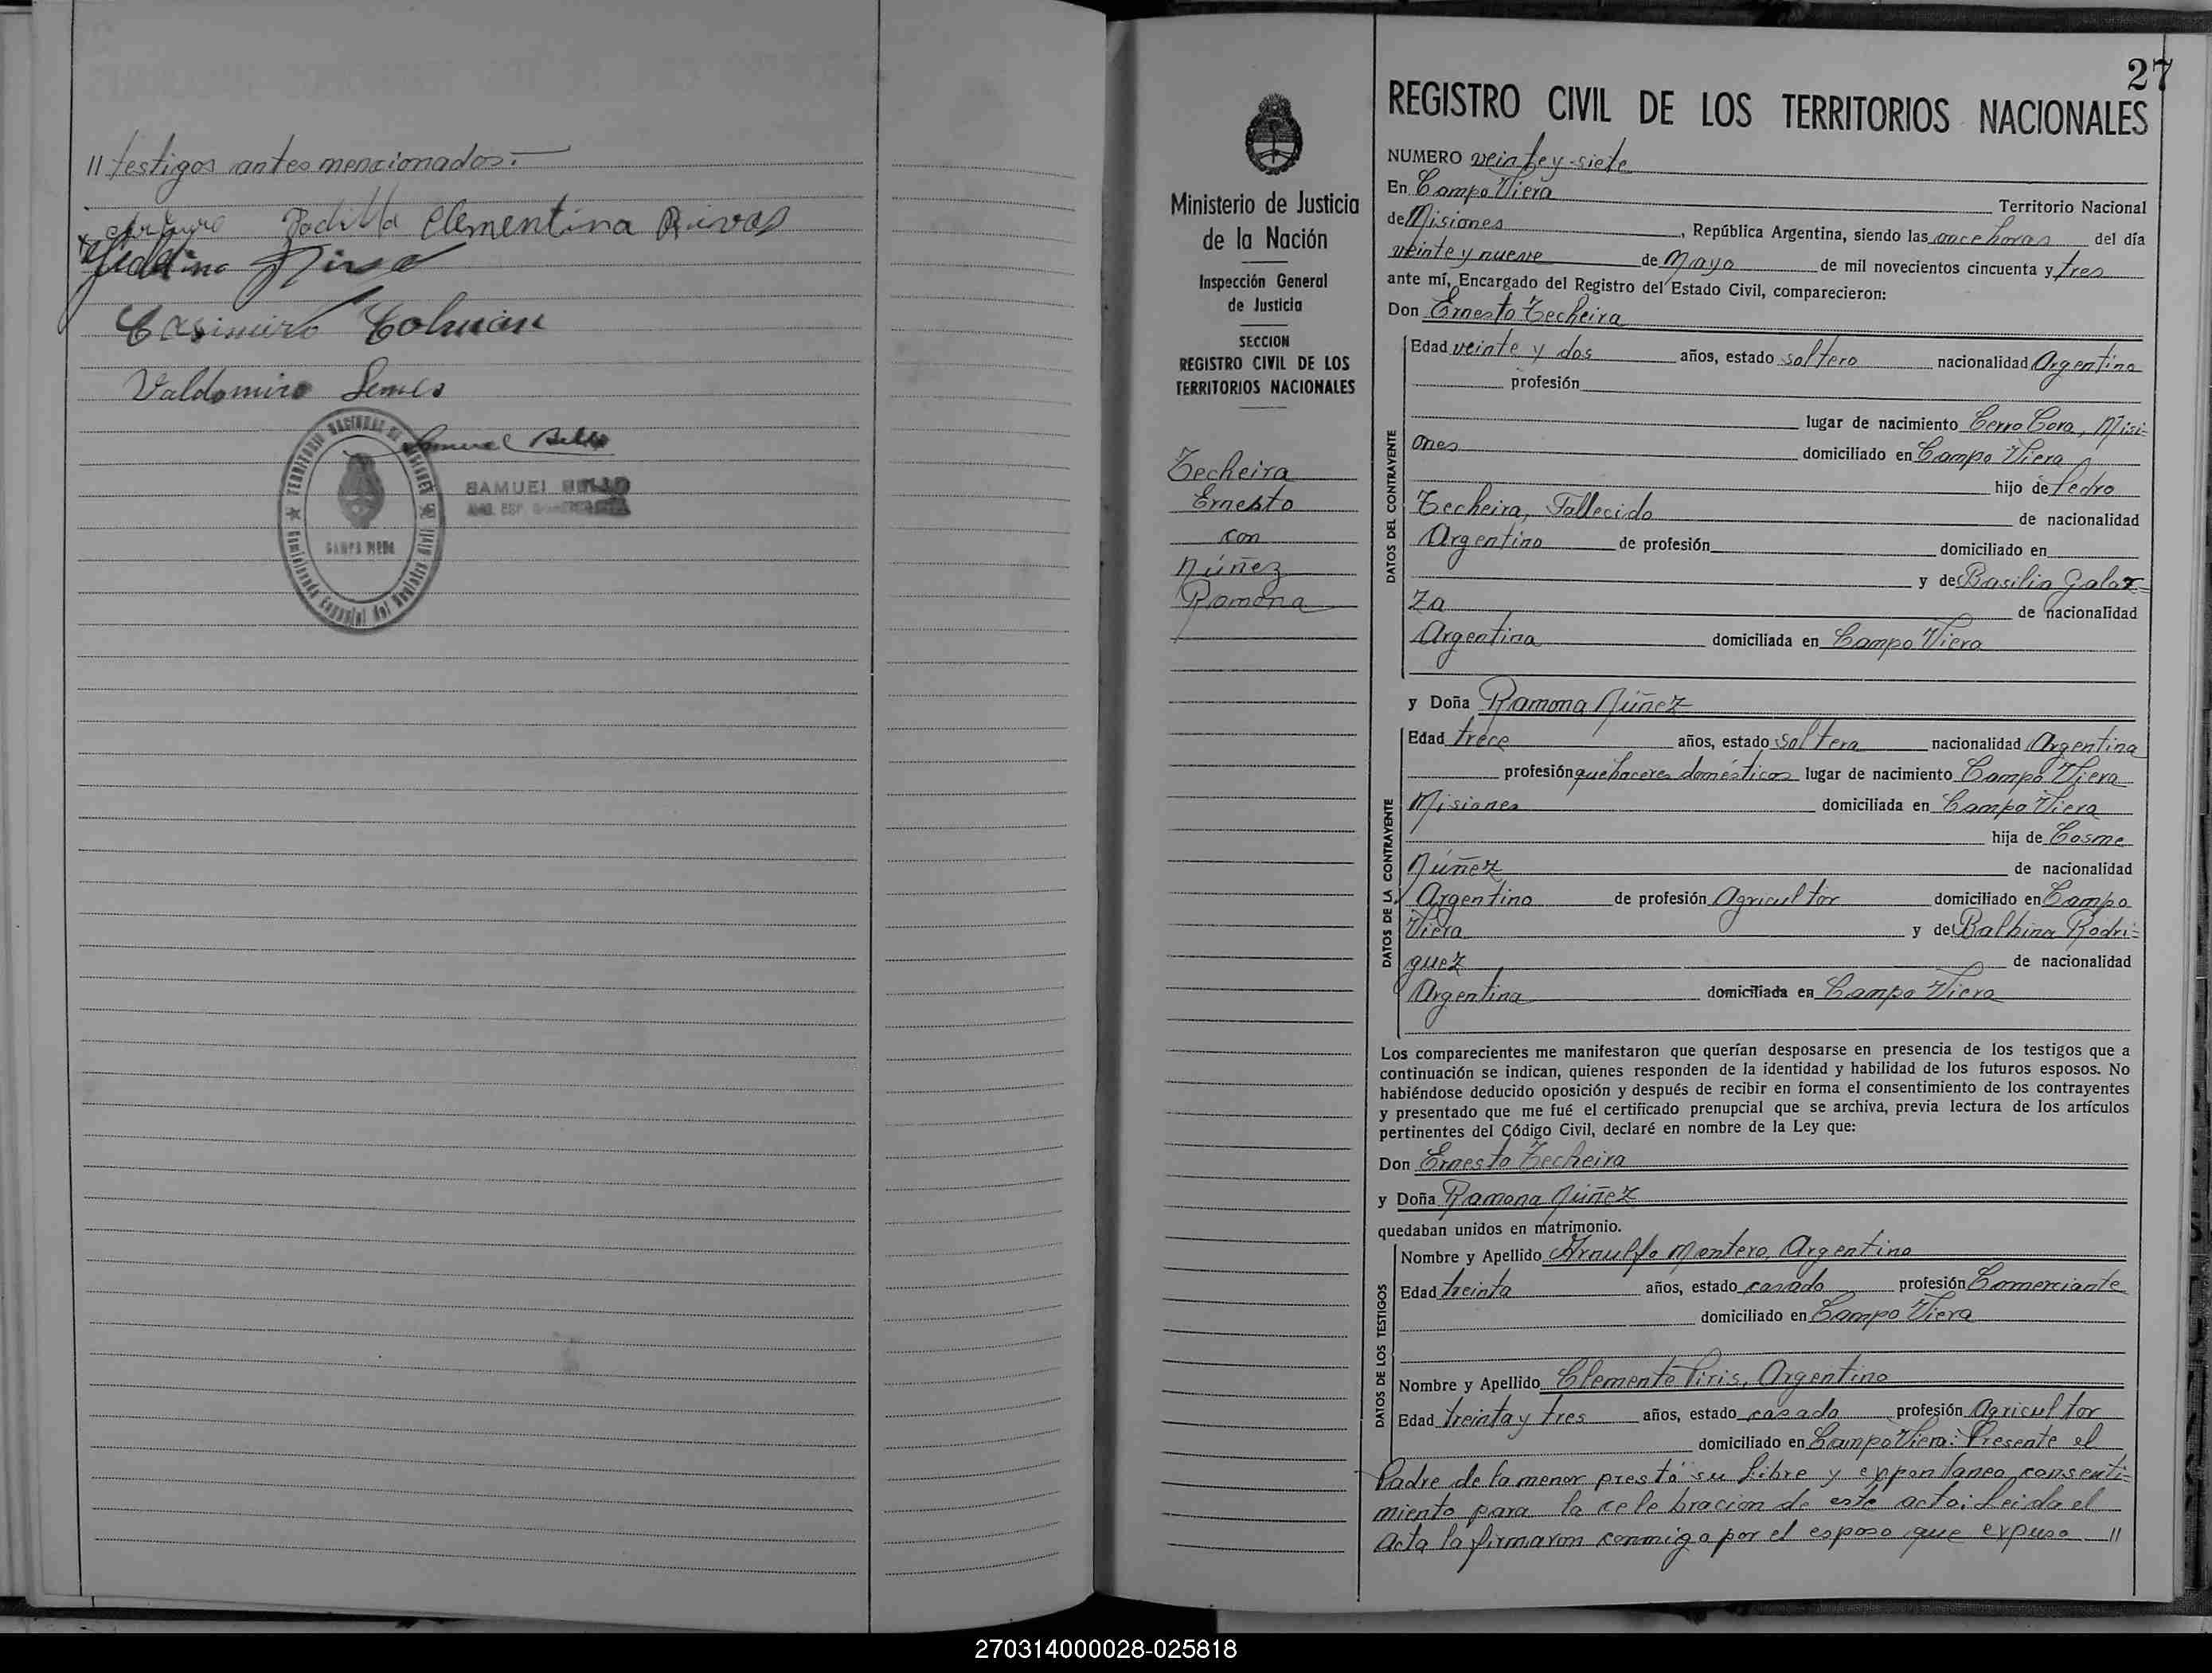 // testigos antes mencionados.-
Padilla Clementina Rivas
Casimiro Colman
Valdomiro
Samuel Bello
SAMUEL BELLO
TERRITORIO NACIONAL DE MISIONES
CAMPO VIERA
27
REGISTRO CIVIL DE LOS TERRITORIOS NACIONALES
Ministerio de Justicia
de la Nación
Inspección General
de Justicia
SECCION
REGISTRO CIVIL DE LOS
TERRITORIOS NACIONALES
Techeira
Ernesto
con
Núñez
Ramona
NUMERO veinte y siete
En Campo Viera Territorio Nacional
de Misiones, República Argentina, siendo las once horas del día
veinte y nueve de Mayo de mil novecientos cincuenta y tres
ante mí, Encargado del Registro del Estado Civil, comparecieron:
Don Ernesto Techeira
DATOS DEL CONTRAYENTE
Edad veinte y dos años, estado soltero nacionalidad Argentina
profesión
lugar de nacimiento Cerro Cora, Misi-
ones domiciliado en Campo Viera
hijo de Pedro
Techeira, Fallecido de nacionalidad
Argentino de profesión domiciliado en
y de Basilia Galar-
za de nacionalidad
Argentina domiciliada en Campo Viera
y Doña Ramona Núñez
DATOS DE LA CONTRAYENTE
Edad trece años, estado soltera nacionalidad Argentina
profesión quehaceres domésticos lugar de nacimiento Campo Viera
Misiones domiciliada en Campo Viera
hija de Cosme
Núñez de nacionalidad
Argentino de profesión Agricultor domiciliado en Campo
Viera y de Balbina Rodri-
guez de nacionalidad
Argentina domiciliada en Campo Viera
Los comparecientes me manifestaron que querían desposarse en presencia de los testigos que a
continuación se indican, quienes responden de la identidad y habilidad de los futuros esposos. No
habiéndose deducido oposición y después de recibir en forma el consentimiento de los contrayentes
y presentado que me fué el certificado prenupcial que se archiva, previa lectura de los artículos
pertinentes del Código Civil, declaré en nombre de la Ley que:
Don Ernesto Techeira
y Doña Ramona Núñez
quedaban unidos en matrimonio.
DATOS DE LOS TESTIGOS
Nombre y Apellido Arnulfo Montero, Argentino
Edad treinta años, estado casado profesión Comerciante
domiciliado en Campo Viera
Nombre y Apellido Clemente Piris, Argentino
Edad treinta y tres años, estado casado profesión Agricultor
domiciliado en Campo Viera: Presente el
Padre de la menor prestó su libre y expontaneo consenti-
miento para la celebracion de este acto: Leida el
Acta la firmaron conmigo por el esposo que expuso //
270314000028-025818